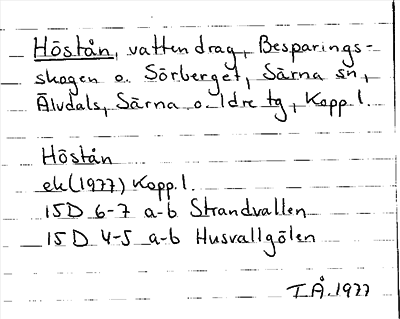 Höstån, vattendrag, Besparings-
skogen o. Sörberget, Särna sn,
Älvdals, Särna o. Idre tg, Kopp l.
Höstån
ek (1977) Kopp. l.
15D 6-7 a-b Strandvallen
15D 4-5 a-b Husvallgölen
T.Å. 1977